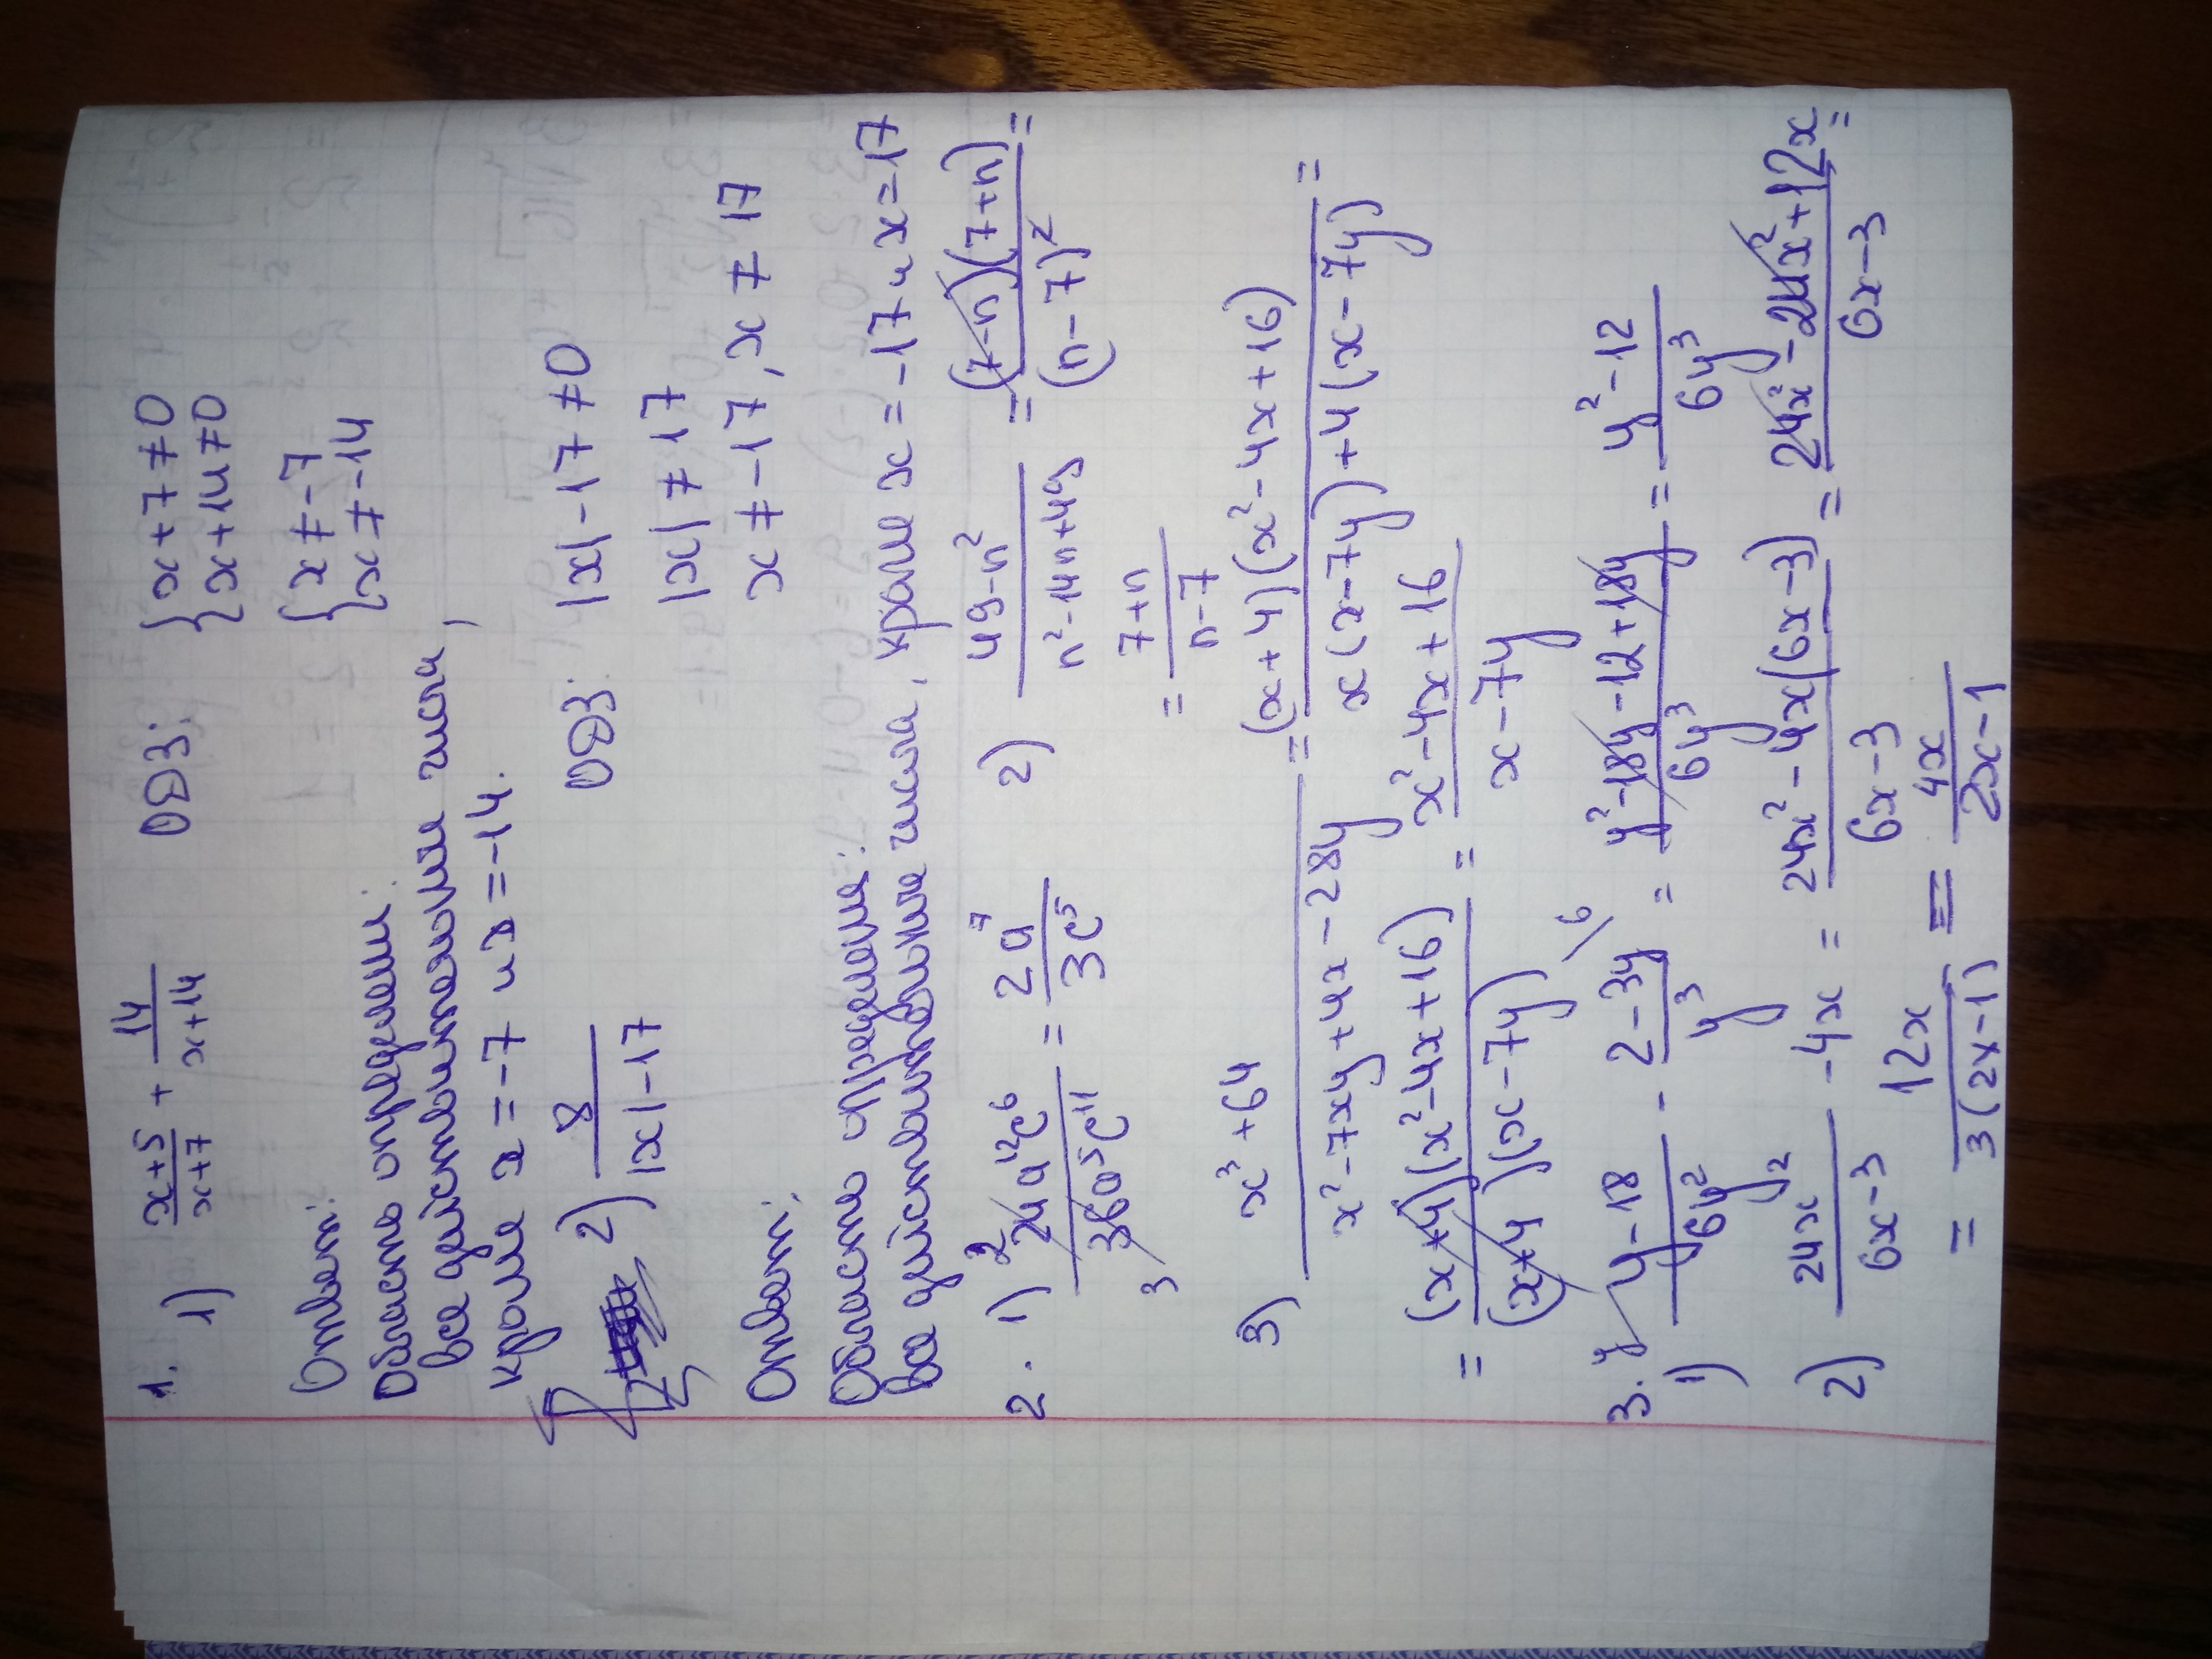 1. 1) (x+5)/(x+7) + 14/(x+14) ОДЗ: {x+7≠0
{x+14≠0
{x≠-7
{x≠-14
Ответ:
Область определения:
все действительные числа,
кроме x=-7 и x=-14.
2) 8/(|x|-17) ОДЗ: |x|-17≠0
|x|≠17
x≠-17, x≠17
Ответ:
Область определения:
все действительные числа, кроме x=-17 и x=17
2. 1) 24a¹²c⁶/36a⁵c¹¹ = 2a⁷/3c⁵ 2) (49-n²)/(n²-14n+49) = (7-n)(7+n)/(n-7)² =
= (7+n)/(n-7)
3) (x³+64)/(x²-7xy+4x-28y) = (x+4)(x²-4x+16)/(x(x-7y)+4(x-7y)) =
= (x+4)(x²-4x+16)/(x+4)(x-7y) = (x²-4x+16)/(x-7y)
3. 1) y/ (y-18)/6y² - (2-3y)/y³ \6 = (y²-18y-12+18y)/6y³ = (y²-12)/6y³
2) 24x²/(6x-3) - 4x = (24x²-4x(6x-3))/(6x-3) = (24x²-24x²+12x)/(6x-3) =
= 12x/3(2x-1) = 4x/(2x-1)